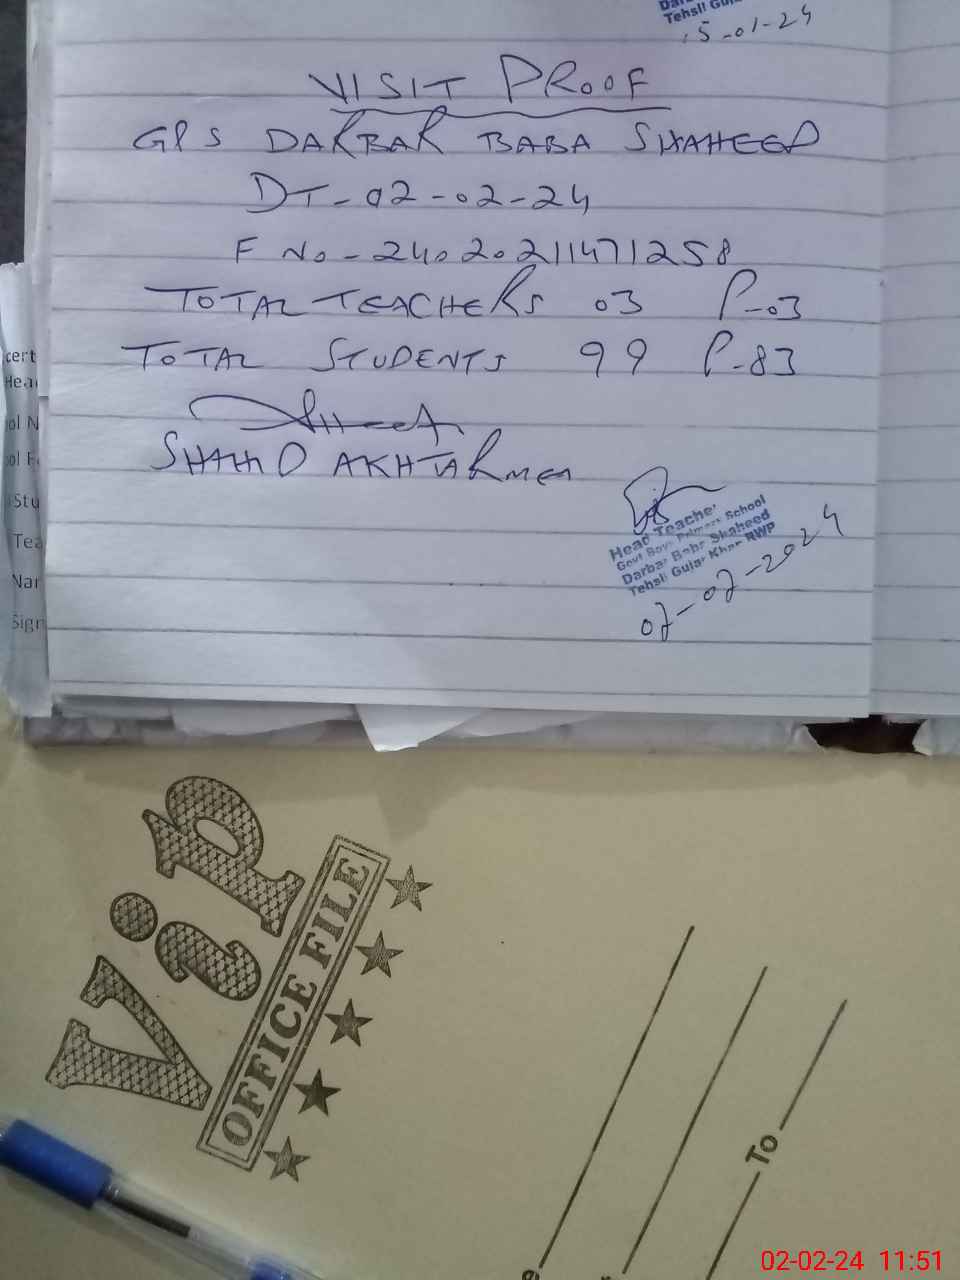 Tehsil Guj
15-01-24
VISIT PROOF
GPS DARBAR BABA SHAHEED
DT-02-02-24
F NO-24020211471258
TOTAL TEACHERS 03 P-03
TOTAL STUDENTS 99 P-83
SHAHID AKHTAR MEA
Head Teacher
Govt Boys Primary School
Darbar Baba Shaheed
Tehsil Gujar Khan RWP
02-02-2024
cert
Head
ol N
Stu
Tea
Nar
Sign
Vip
OFFICE FILE
To
02-02-24 11:51